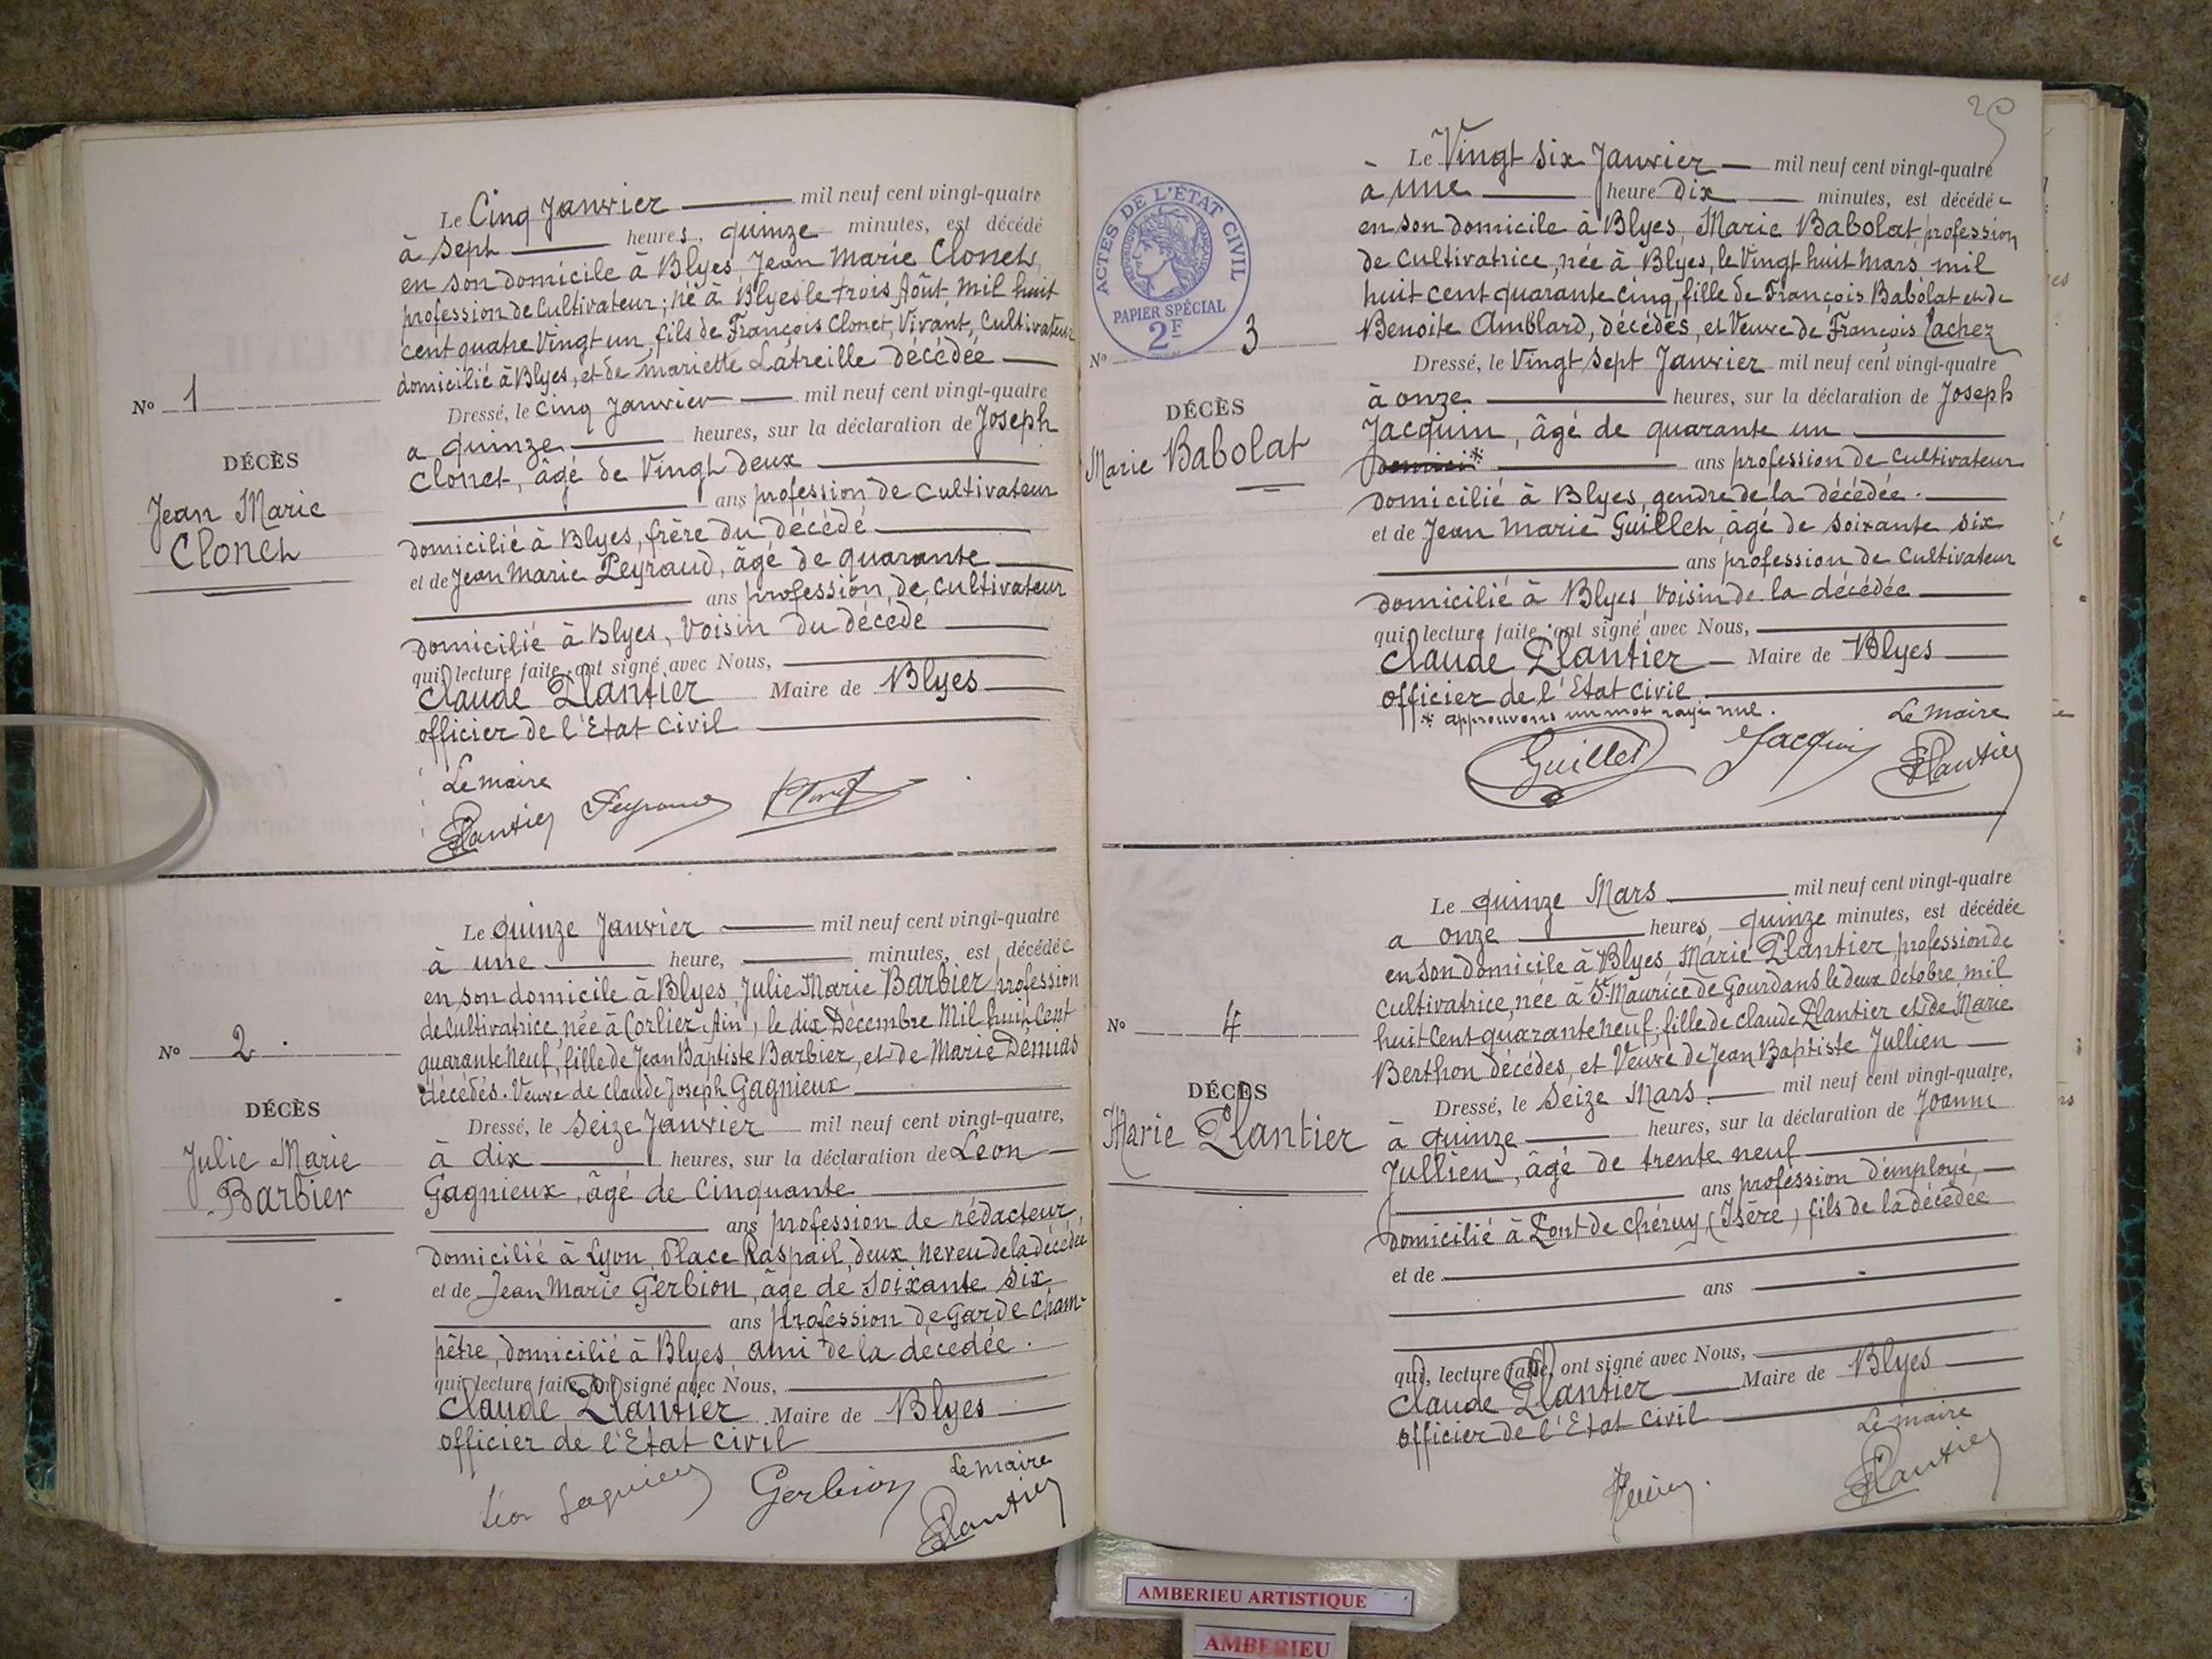 Le Cinq Janvier mil neuf cent vingt-quatre
à sept heures, quinze minutes, est décédé
en son domicile à Blyes, Jean Marie Clonet,
profession de Cultivateur; né à Blyes le trois Août mil huit
cent quatre Vingt un, fils de François Clonet, Vivant, Cultivateur
domicilié à Blyes, et de Mariette Latreille décédée
Nº 1
DÉCÈS
Jean Marie
Clonet
Dressé, le cinq Janvier mil neuf cent vingt-quatre
a quinze heures, sur la déclaration de Joseph
Clonet, âgé de Vingt deux
ans profession de Cultivateur
domicilié à Blyes, frère du décédé
et de Jean Marie Peyraud, âgé de quarante
ans profession de cultivateur
domicilié à Blyes, Voisin du décédé
qui, lecture faite, ont signé avec Nous,
Claude Plantier Maire de Blyes
officier de l'Etat Civil
Le maire
Plantier Peyraud Clonet
Le quinze Janvier mil neuf cent vingt-quatre
à une heure, minutes, est décédée
en son domicile à Blyes, Julie Marie Barbier profession
de Cultivatrice, née à Corlier, Ain, le dix Décembre Mil huit Cent
quarante neuf, fille de Jean Baptiste Barbier, et de Marie Démias
décédés. Veuve de Claude Joseph Gagnieux
Nº 2
DÉCÈS
Julie Marie
Barbier
Dressé, le Seize Janvier mil neuf cent vingt-quatre,
à dix heures, sur la déclaration de Leon
Gagnieux, âgé de Cinquante
ans profession de rédacteur,
domicilié à Lyon, Place Raspail, deux, neveu de la décédée
et de Jean Marie Gerbion, âgé de Soixante six
ans profession de Garde cham-
pêtre, domicilié à Blyes, ami de la décédée.
qui, lecture faite, ont signé avec Nous,
Claude Plantier Maire de Blyes
officier de l'Etat Civil
Léon Gagnieux Gerbion Le maire
Plantier
20
ACTES DE L'ÉTAT CIVIL
RÉPUBLIQUE FRANÇAISE
PAPIER SPÉCIAL
2F
Le Vingt six Janvier mil neuf cent vingt-quatre
à une heure dix minutes, est décédée
en son domicile à Blyes, Marie Babolat, profession
de Cultivatrice, née à Blyes, le Vingt huit Mars mil
huit cent quarante cinq, fille de François Babolat et de
Benoite Amblard, décédés, et Veuve de François Lachez
Nº 3
DÉCÈS
Marie Babolat
Dressé, le Vingt Sept Janvier mil neuf cent vingt-quatre
à onze heures, sur la déclaration de Joseph
Jacquin, âgé de quarante un
domici* ans profession de Cultivateur
domicilié à Blyes, gendre de la décédée.
et de Jean Marie Guillet, âgé de soixante six
ans profession de Cultivateur
domicilié à Blyes, voisin de la décédée
qui, lecture faite, ont signé avec Nous,
Claude Plantier Maire de Blyes
officier de l'Etat Civil
* approuvons un mot rayé nul.
Le maire
Guillet Jacquin Plantier
Le quinze Mars mil neuf cent vingt-quatre
a onze heures, quinze minutes, est décédée
en son domicile à Blyes, Marie Plantier profession de
Cultivatrice, née à St Maurice de Gourdans le deux octobre mil
huit Cent quarante neuf, fille de Claude Plantier et de Marie
Berthon décédés, et Veuve de Jean Baptiste Jullien
Nº 4
DÉCÈS
Marie Plantier
Dressé, le Seize Mars mil neuf cent vingt-quatre,
à quinze heures, sur la déclaration de Joanni
Jullien, âgé de trente neuf
ans profession d'employé,
domicilié à Pont de Chéruy, (Isère) fils de la décédée
et de
ans
qui, lecture faite, ont signé avec Nous,
Claude Plantier Maire de Blyes
officier de l'Etat Civil
Le maire
Jullien. Plantier
AMBERIEU ARTISTIQUE
AMBERIEU